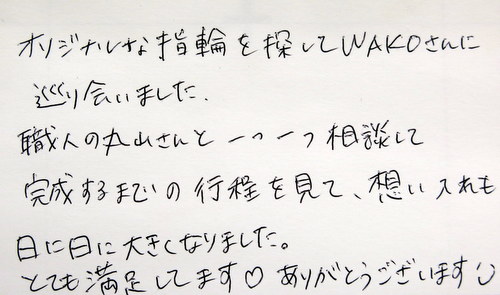 オリジナルな指輪を探してWAKOさんに
巡り会いました.
職人の丸山さんと一つ一つ相談して
完成するまでの行程を見て、想い入れも
日に日に大きくなりました。
とても満足してます♡ ありがとうございます